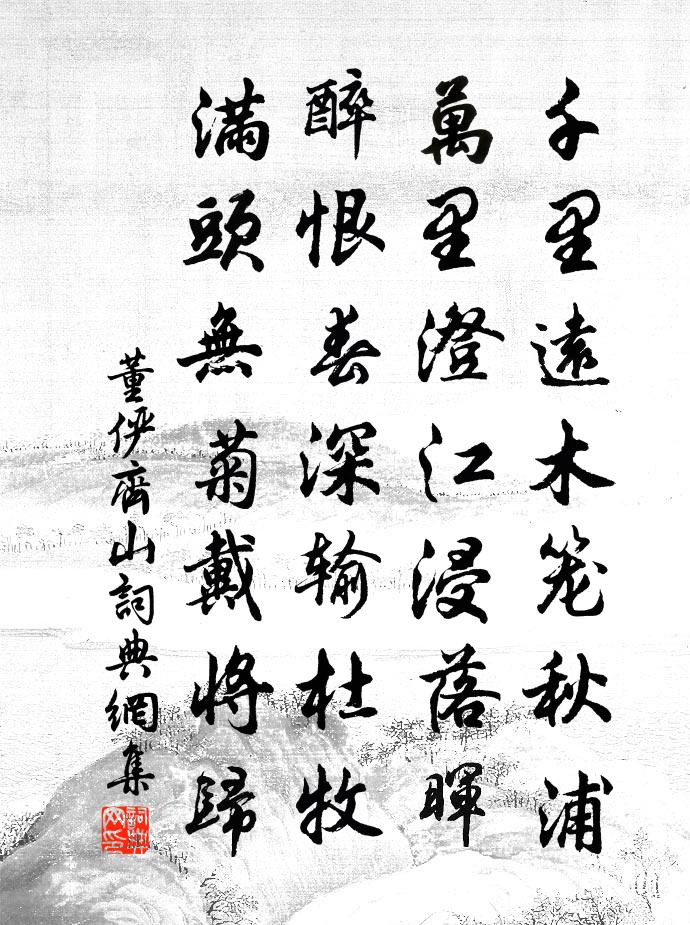 千里遠木笼秋浦
萬里澄江浸落暉
醉恨春深輸杜牧
滿頭無菊戴將歸
董伊齊山詞典網集